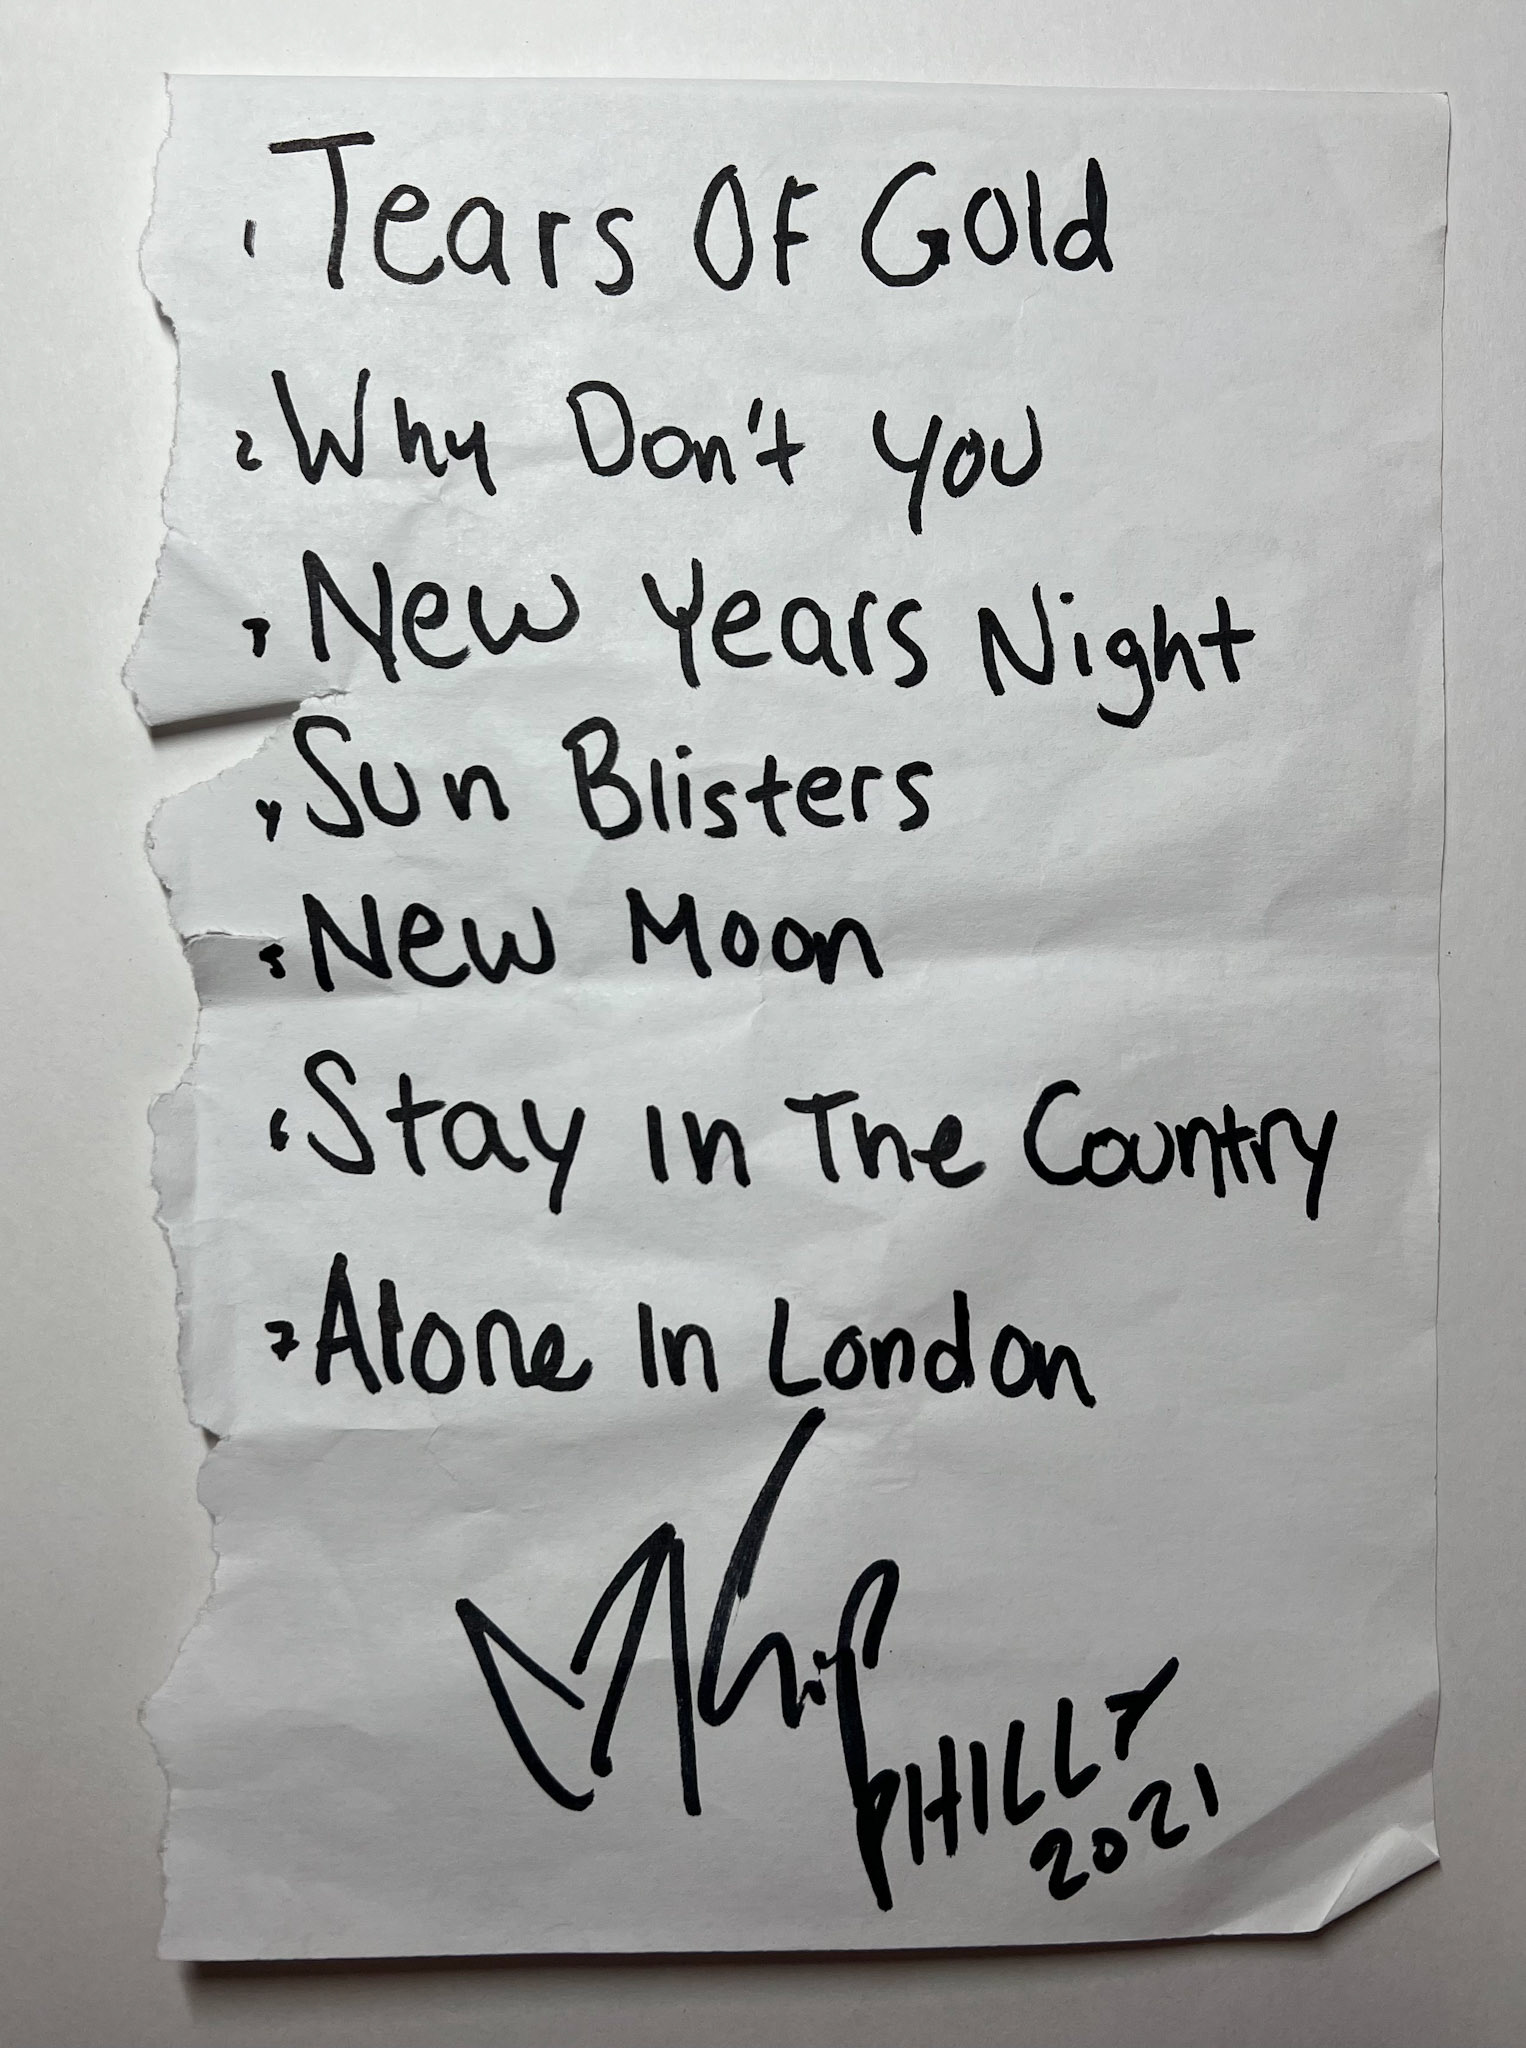 1 Tears Of Gold
2 Why Don't You
3 New Years Night
4 Sun Blisters
5 New Moon
6 Stay In The Country
7 Alone In London
PHILLY
2021